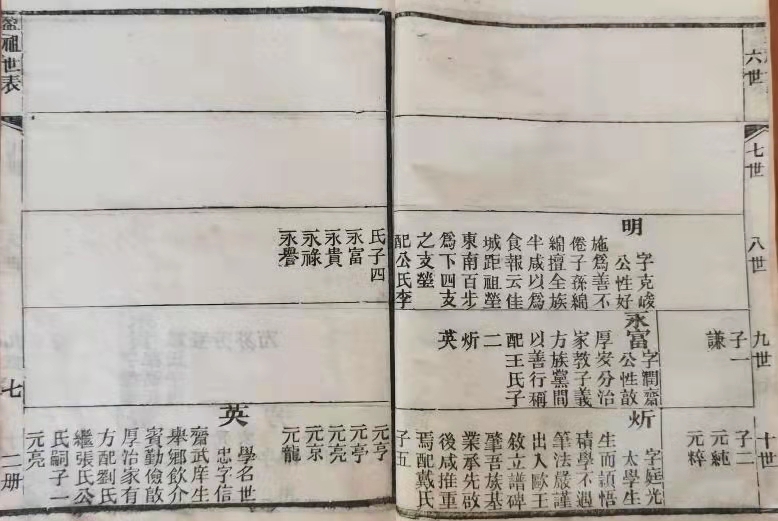 六世
七世
八世
明
字克峻
公性好
施為善不
倦子孫綿
綿擅全族
半咸以為
食報云佳
城距祖塋
東南百步
為下四支
之支塋
配公氏李
氏子四
永富
永貴
永祿
永譽
九世
子一
謙
永富
字潤齋
公性敦
厚安分治
家教子義
方族黨間
以善行稱
配王氏子
二
炘
英
十世
子二
元純
元粹
炘
字庭光
太學生
生而穎悟
績學不遇
筆法嚴謹
出入歐王
敘立譜碑
肇吾族基
業承先啟
後咸推重
焉配戴氏
子五
元亨
元亭
元亮
元京
元龍
英
學名世
忠字信
齋武庠生
舉鄉飲介
賓勤儉敦
厚治家有
方配劉氏
繼張氏公
氏嗣子一
元亮
祖世表
七
二册